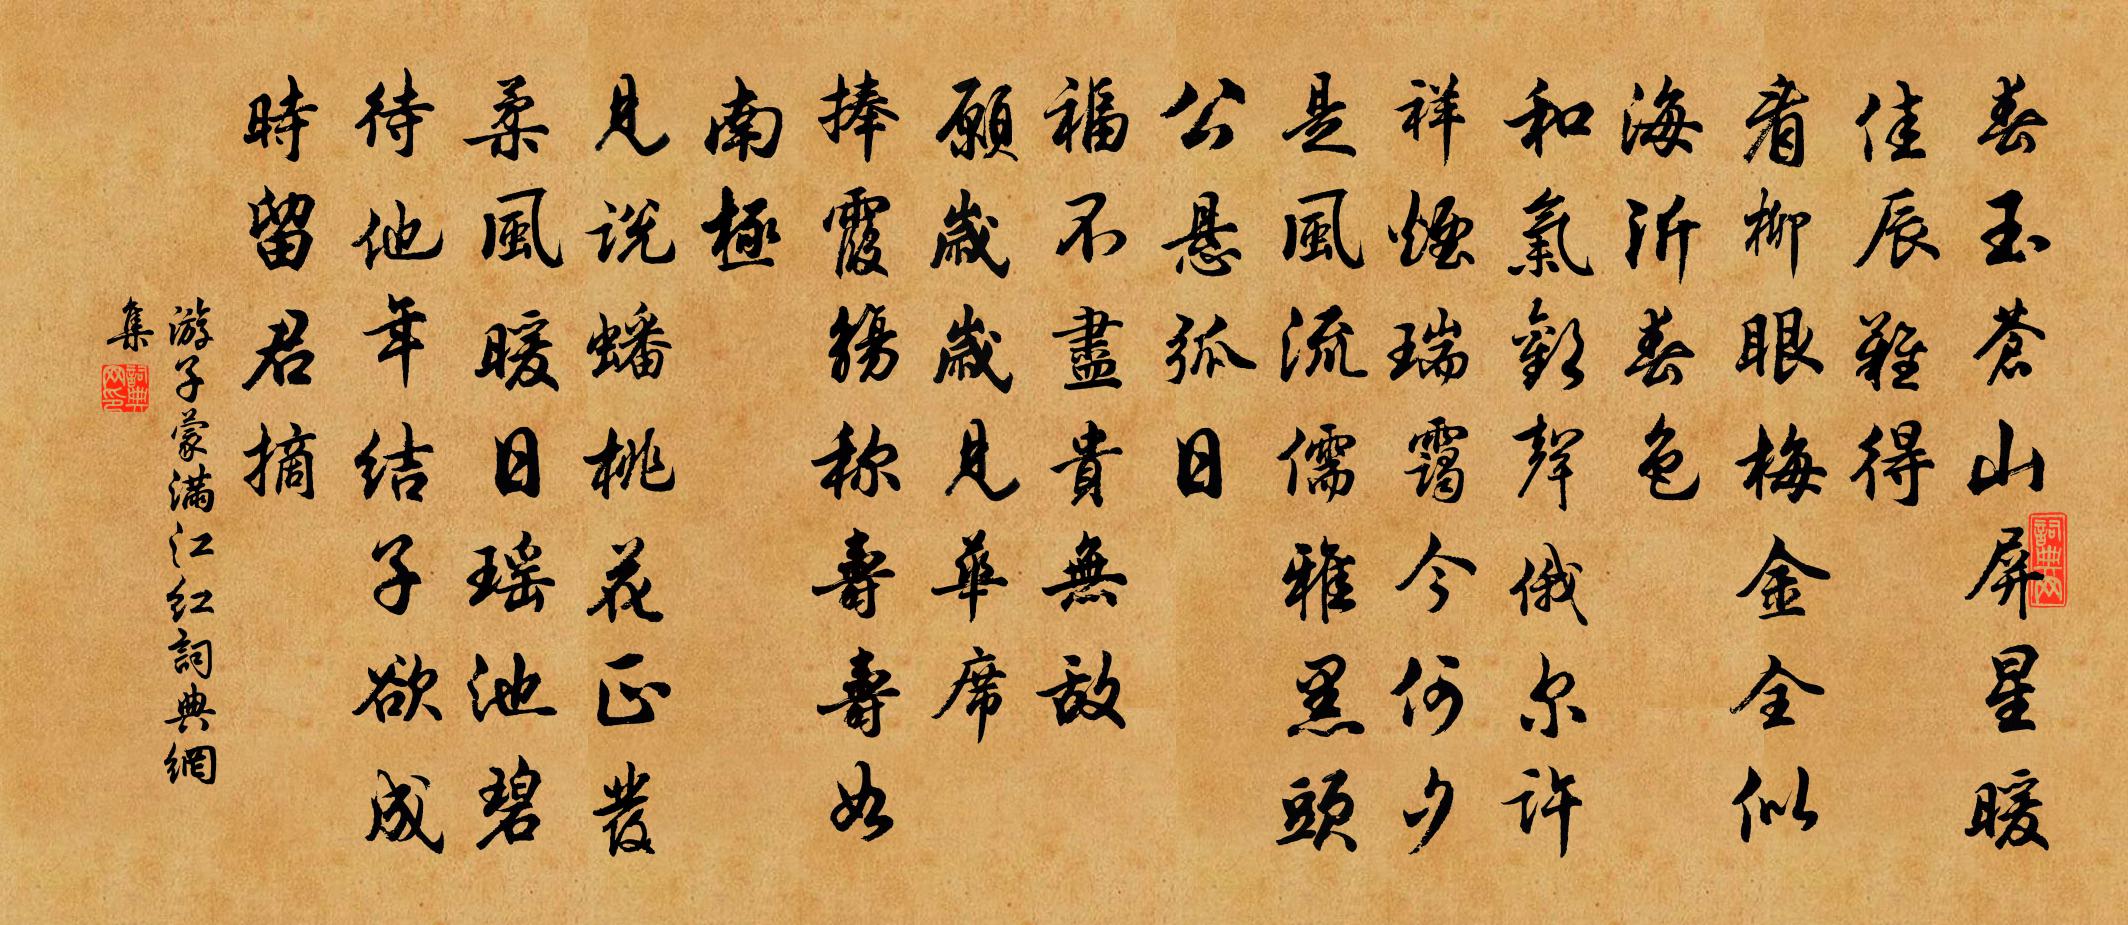 春玉蒼山屏星暖
佳辰難得
看柳眼梅金全似
海沂春色
和氣歡聲俄尔許
祥煙瑞靄今何夕
是風流儒雅黑頭
公懸弧日
福不盡貴無敵
願歲歲見華席
捧霞觴称壽壽如
南極
見说蟠桃花正發
柔風暖日瑶池碧
待他年结子欲成
時留君摘
游子蒙满江红詞典網
集
詞典网
詞典网印